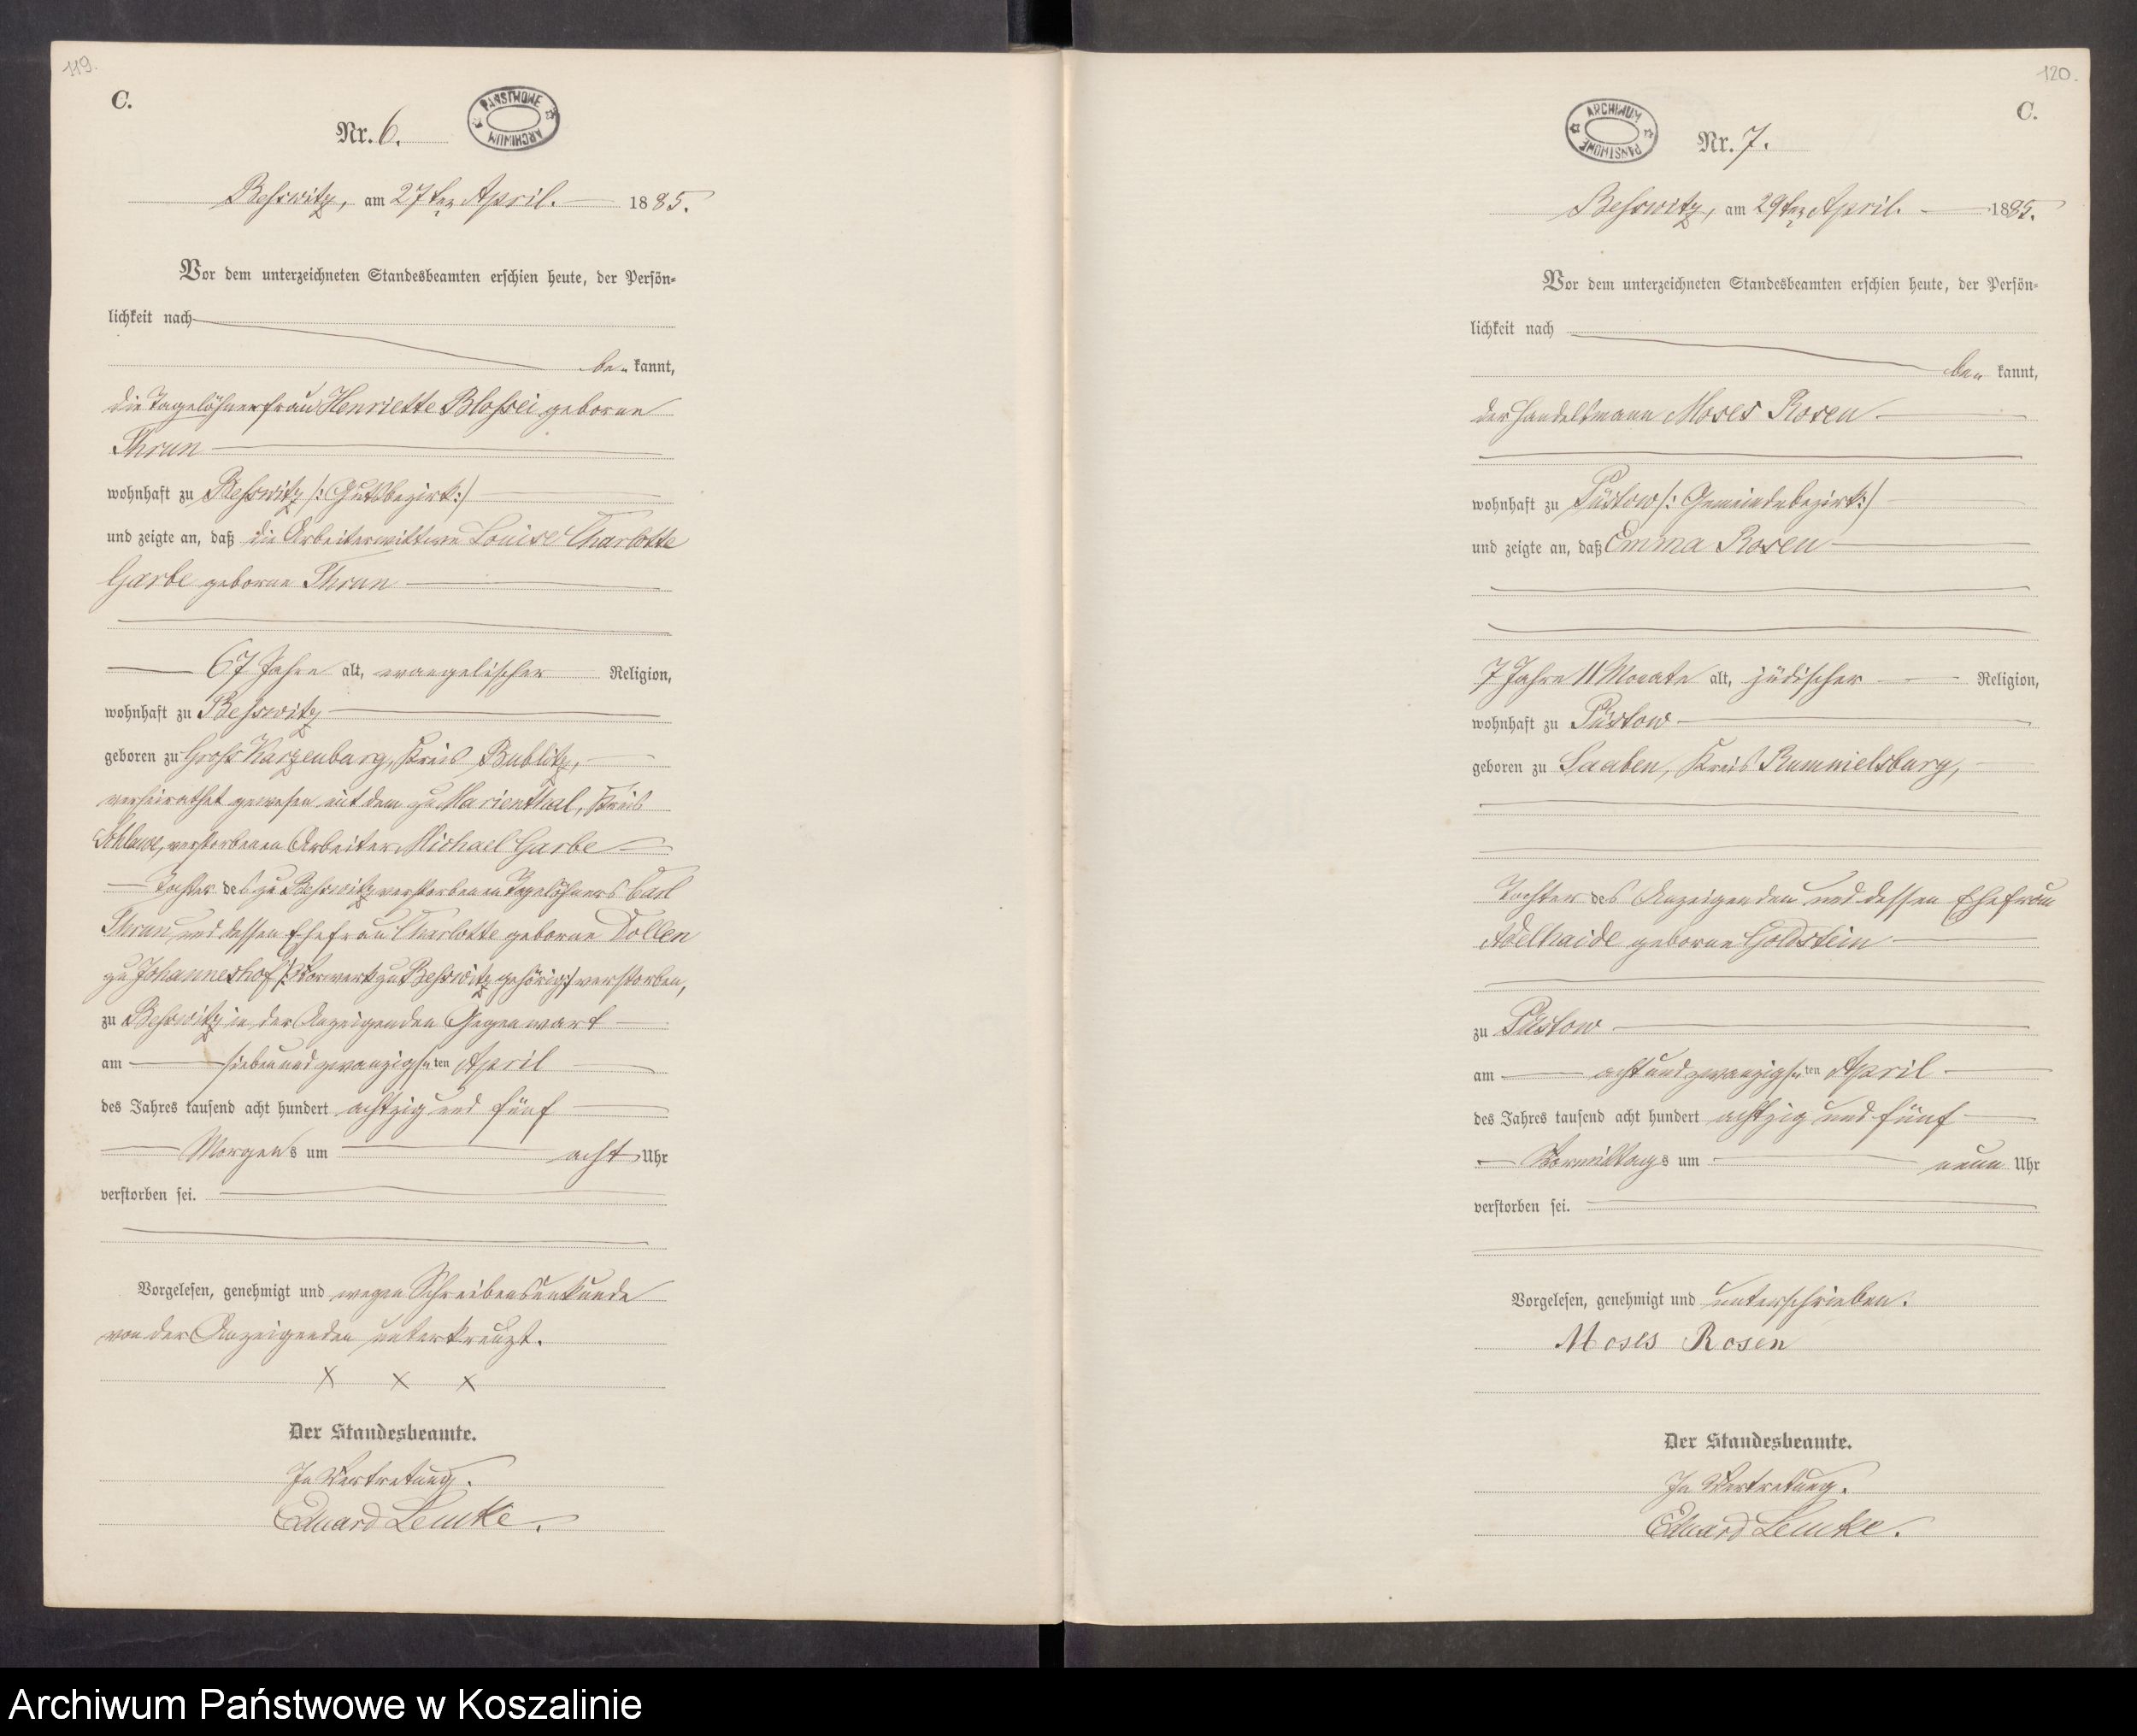 119.
C.
PAŃSTWOWE ARCHIWUM
Nr. 6.
Beßwitz, am 27ten April. 1885.
Vor dem unterzeichneten Standesbeamten erschien heute, der Persön-
lichkeit nach
be- kannt,
die Tagelöhnerfrau Henriette Bloßei geborne
Thrun
wohnhaft zu Beßwitz /: Gutsbezirk :/
und zeigte an, daß die Arbeiterwittwe Louise Charlotte
Garbe geborne Thrun
67 Jahre alt, evangelischer Religion,
wohnhaft zu Beßwitz
geboren zu Groß Karzenburg, Kreis Bublitz,
verheirathet gewesen mit dem zu Marienthal, Kreis
Schlawe, verstorbenen Arbeiter Michael Garbe
Tochter des zu Beßwitz verstorbenen Tagelöhners Carl
Thrun und dessen Ehefrau Charlotte geborne Dollen
zu Johanneshof /: Vorwerk zu Beßwitz gehörig :/ verstorben,
zu Beßwitz in der Anzeigenden Gegenwart
am siebenundzwanzigsten April
des Jahres tausend acht hundert achtzig und fünf
Morgens um acht Uhr
verstorben sei.
Vorgelesen, genehmigt und wegen Schreibensunkunde
von der Anzeigenden unterkreuzt.
X X X
Der Standesbeamte.
In Vertretung.
Eduard Lemke.
120.
C.
ARCHIWUM PAŃSTWOWE
Nr. 7.
Beßwitz, am 29ten April. 1885.
Vor dem unterzeichneten Standesbeamten erschien heute, der Persön-
lichkeit nach
be- kannt,
der Handelsmann Moses Rosen
wohnhaft zu Püstow /: Gemeindebezirk :/
und zeigte an, daß Emma Rosen
7 Jahre 11 Monate alt, jüdischer Religion,
wohnhaft zu Püstow
geboren zu Saaben, Kreis Rummelsburg,
Tochter des Anzeigenden und dessen Ehefrau
Adelhaide geborne Goldstein
zu Püstow
am achtundzwanzigsten April
des Jahres tausend acht hundert achtzig und fünf
Vormittags um neun Uhr
verstorben sei.
Vorgelesen, genehmigt und unterschrieben.
Moses Rosen
Der Standesbeamte.
In Vertretung.
Eduard Lemke.
Archiwum Państwowe w Koszalinie